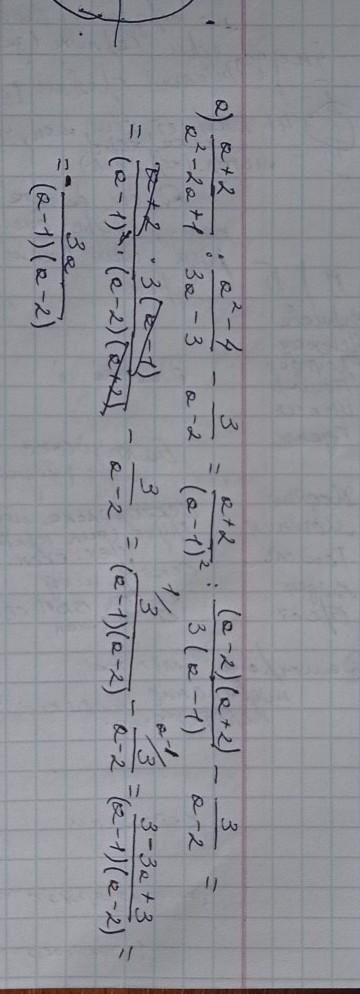 а) (a+2)/(a²-2a+1) : (a²-4)/(3a-3) - 3/(a-2) = (a+2)/(a-1)² : (a-2)(a+2)/3(a-1) - 3/(a-2) =
= (a+2) · 3(a-1)/(a-1)² · (a-2)(a+2) - 3/(a-2) = 1/ 3/(a-1)(a-2) - a-1/ 3/(a-2) = (3-3a+3)/(a-1)(a-2) =
= - 3a/(a-1)(a-2)